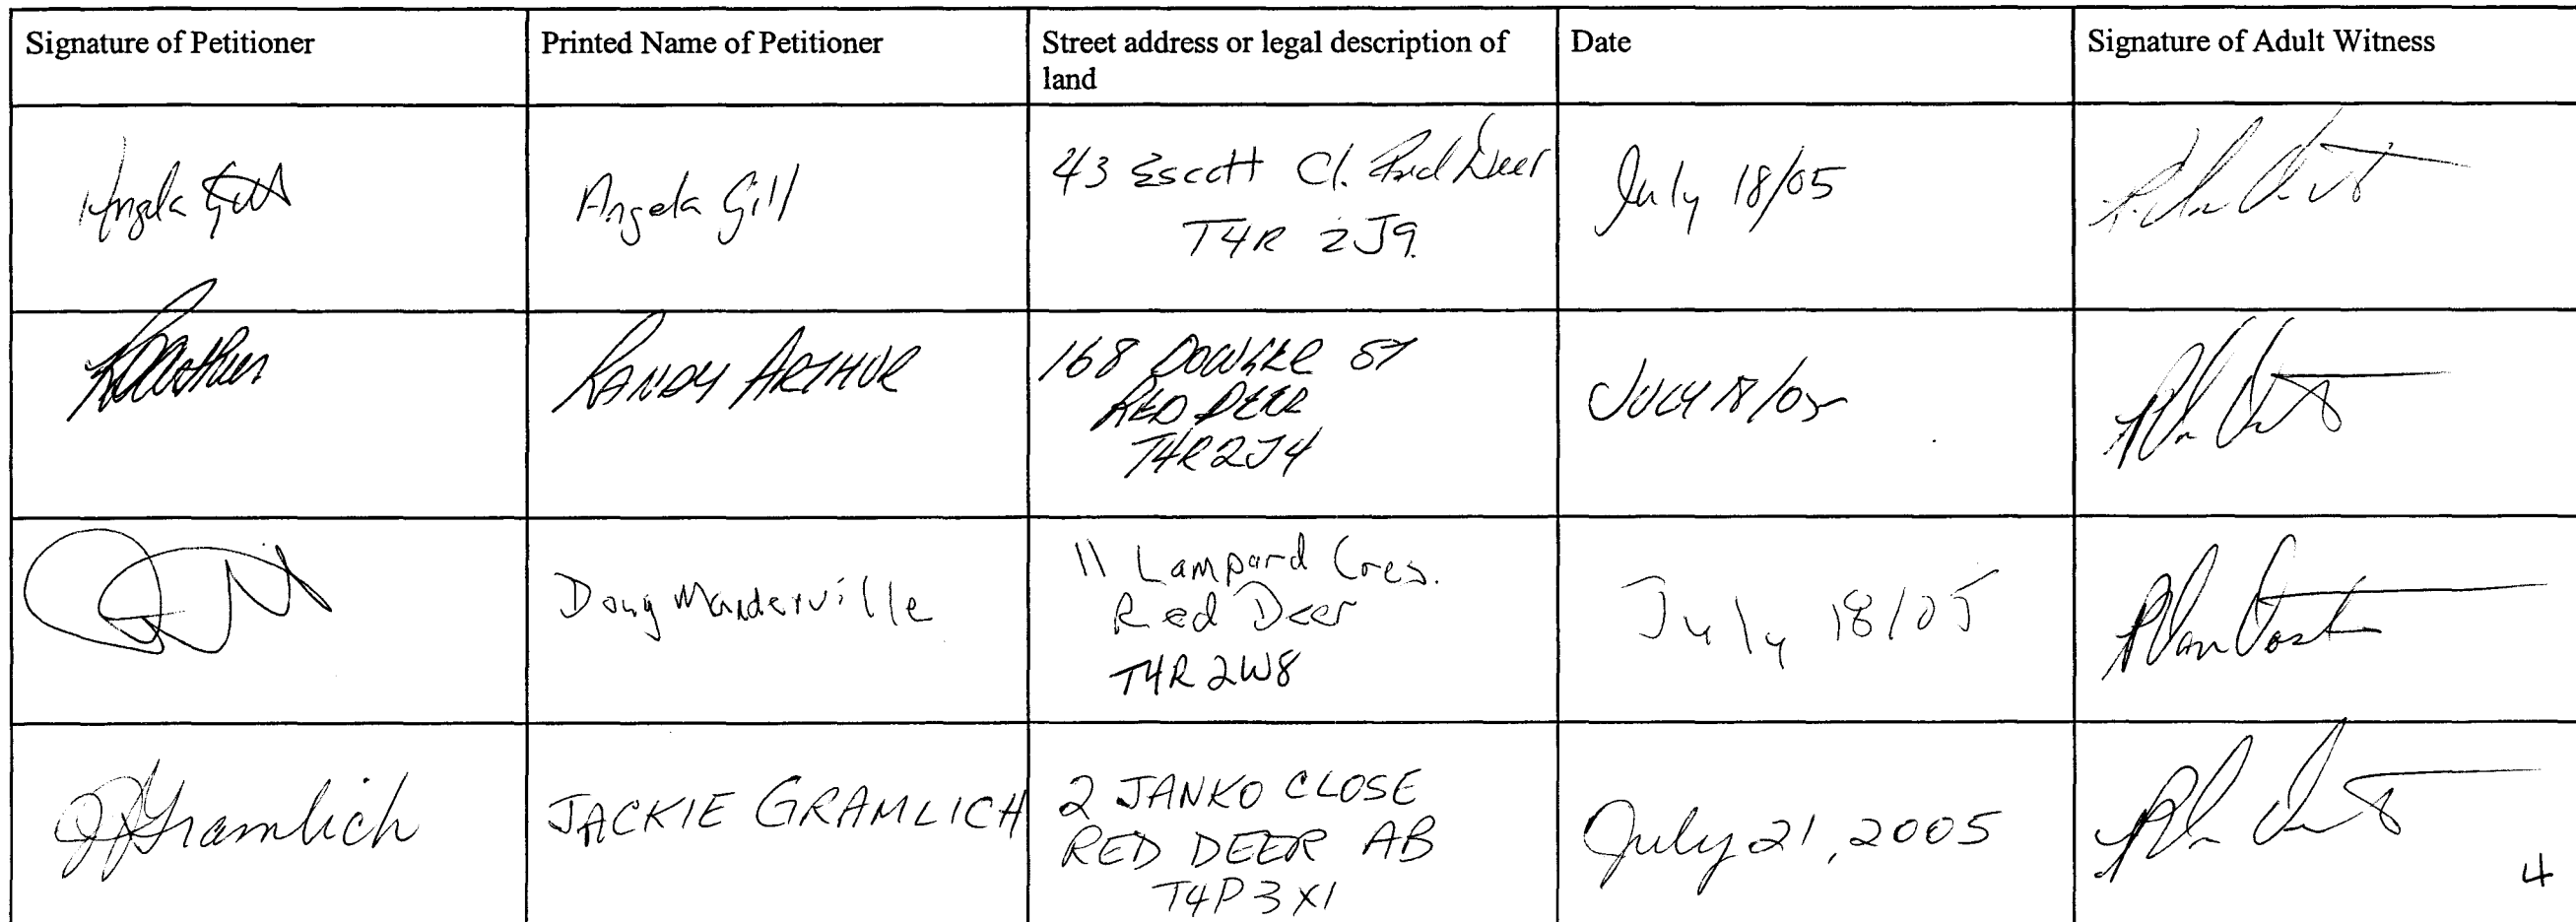 Signature of Petitioner
Printed Name of Petitioner
Street address or legal description of
land
Date
Signature of Adult Witness
Angela Gill
Angela Gill
43 Escott Cl. Red Deer
T4R 2J9.
July 18/05
RANDY ARTHUR
168 DOWLER ST
RED DEER
T4R2J4
JULY 18/05
Doug Manderville
11 Lampard Cres.
Red Deer
T4R 2W8
July 18/05
Gramlich
JACKIE GRAMLICH
2 JANKO CLOSE
RED DEER AB
T4P 3X1
July 21, 2005
4